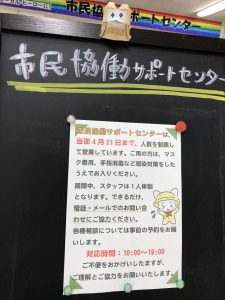 市民協働サポートセンター
市民協働サポートセンター
市民協働サポートセンターは、
当面4月21日まで、人数を制限し
て営業しています。ご用の方は、マス
ク着用、手指消毒など感染対策をした
うえでお入りください。
期間中、スタッフは1人体制
となります。できるだけ、
電話・メールでのお問い合
わせにご協力ください。
各種相談については事前の予約をお願
いします。
対応時間：10:00～19:00
ご不便をおかけいたしますが、
ご理解とご協力をお願いいたします。